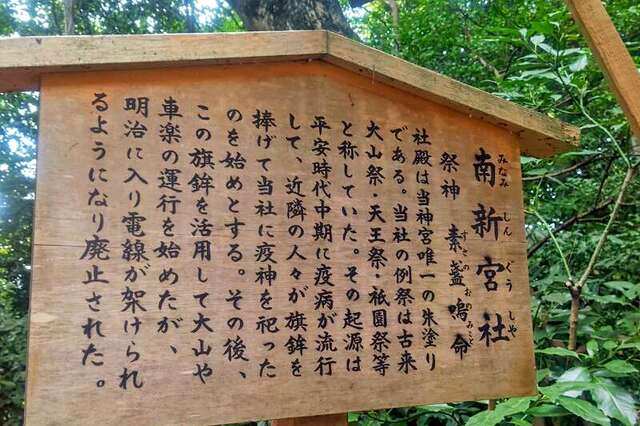 南新宮社
みなみしんぐうしや
祭神　素盞嗚命
すさのおのみこと
社殿は当神宮唯一の朱塗り
である。当社の例祭は古来
大山祭・天王祭・祇園祭等
と称していた。その起源は
平安時代中期に疫病が流行
して、近隣の人々が旗鉾を
捧げて当社に疫神を祀った
のを始めとする。その後、
この旗鉾を活用して大山や
車楽の運行を始めたが、
明治に入り電線が架けられ
るようになり廃止された。